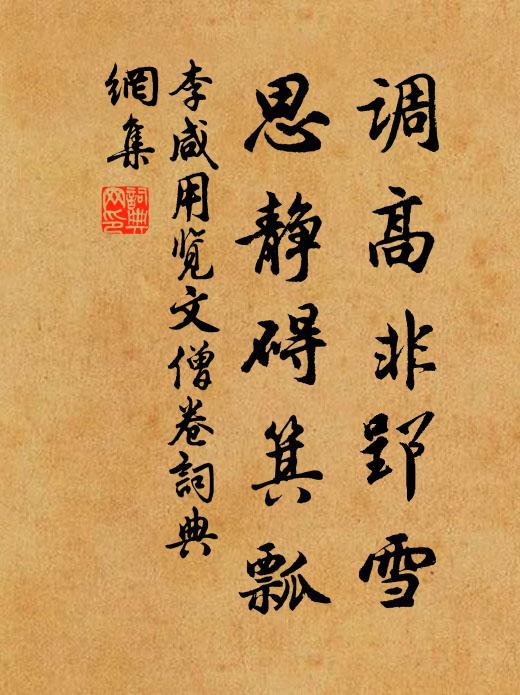 调高非郢雪
思静碍箕瓢
李咸用览文僧卷詞典
網集
詞典網印